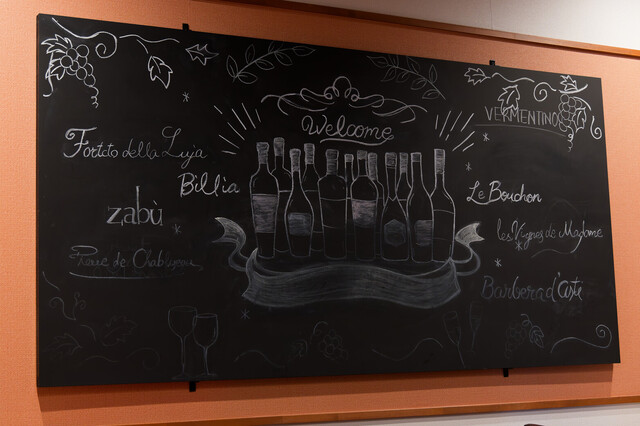 Welcome
Forteto della Luja
Billia
zabù
Pierre de
VERMENTINO
Le Bouchon
les Vignes de Madame
Barbera d'Asti